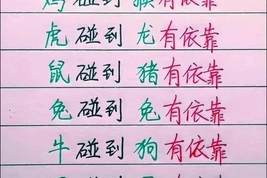 鸡碰到 猴有依靠
虎碰到 龙有依靠
鼠碰到 猪有依靠
兔碰到 兔有依靠
牛碰到 狗有依靠